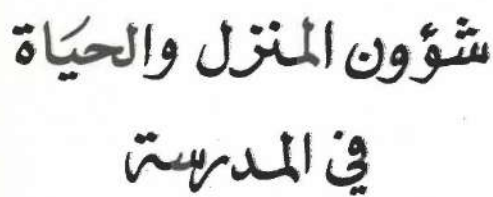 شؤون المنزل والحيَاة
في المدرسة